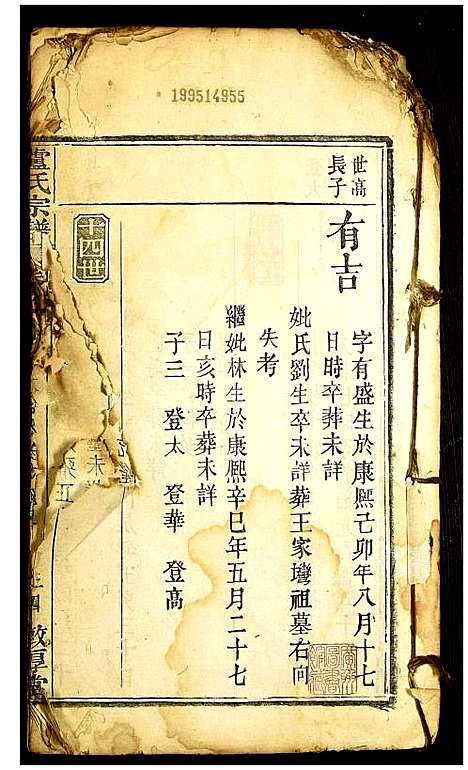 199514955
世高
長子
有吉
字有盛生於康熙己卯年八月十七
日時卒葬未詳
妣氏劉生卒未詳葬王家塆祖墓右向
失考
繼妣林生於康熙辛巳年五月二十七
日亥時卒葬未詳
子三 登太 登華 登高
十四世
盧氏宗譜
敦厚堂